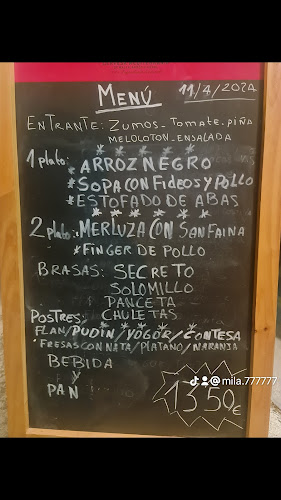 MENÚ 11/4/2024
ENTRANTE: ZUMOS_TOMATE_PIÑA
MELOCOTON_ENSALADA
1 plato: *ARROZ NEGRO
*SOPA CON FideOS Y POLLO
*ESTOFADO DE ABAS
2 plato: *MERLUZA CON SANFAINA
*FINGER DE POLLO
BRASAS: SECRETO
SOLOMILLO
PANCETA
CHULETAS
POSTRES:
FLAN/PUDIN/YOGUR/CONTESA
*FRESAS CON NATA/PLATANO/NARANJA
BEBIDA
Y
PAN
13'50€
@mila.777777